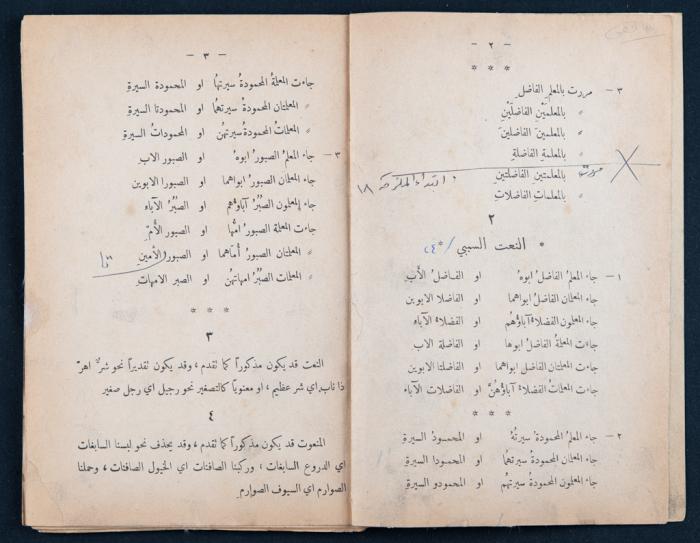 — ٢ —
* * *
٣ — مررت بالمعلمِ الفاضلِ
» بالمعلمَيْنِ الفاضلَيْنِ
» بالمعلمينَ الفاضلينَ
» بالمعلمةِ الفاضلةِ
مررت بالمعلمتينِ الفاضلتينِ
» بالمعلماتِ الفاضلاتِ
٢
* النعت السببي
١ — جاء المعلمُ الفاضلُ ابوهُ او الفاضلُ الأبِ
جاء المعلمان الفاضلُ ابواهما او الفاضلا الابوين
جاء المعلمون الفضلاءُ آباؤُهُم او الفضلاء الآباء
جاءت المعلمةُ الفاضلُ ابوها او الفاضلة الاب
جاءت المعلمتان الفاضل ابواهما او الفاضلتا الابوين
جاءت المعلماتُ الفضلاءُ آباؤُهُنَّ او الفاضلات الآباء
* * *
٢ — جاء المعلمُ المحمودةُ سيرتُهُ او المحمودُ السيرةِ
جاء المعلمان المحمودةُ سيرتهما او المحمودا السيرةِ
جاء المعلمون المحمودةُ سيرتهم او المحمودو السيرةِ
— ٣ —
جاءت المعلمةُ المحمودةُ سيرتها او المحمودة السيرةِ
» المعلمتان المحمودةُ سيرتهما او المحمودتا السيرةِ
» المعلماتُ المحمودةُ سيرتهن او المحموداتُ السيرةِ
٣ — جاء المعلمُ الصبورُ ابوهُ او الصبور الابِ
جاء المعلمان الصبورُ ابواهما او الصبورا الابوين
جاء المعلمون الصُبُرُ آباؤُهم او الصُبُرُ الآباء
جاءت المعلمة الصبورُ امُّها او الصبور الأُمِّ
» المعلمتان الصبورُ أُمّاهما او الصبورا الأُمين تا
» المعلمات الصُبُرُ امهاتهُن او الصبر الامهاتِ
* * *
٣
النعت قد يكون مذكوراً كما تقدم ، وقد يكون تقديراً نحو شرٌّ اهرّ
ذا ناب اي شر عظيم ، او معنوياً كالتصغير نحو رجيل اي رجل صغير
٤
المنعوت قد يكون مذكوراً كما تقدم ، وقد يحذف نحو لبسنا السابغات
اي الدروع السابغات ، وركبنا الصافنات اي الخيول الصافنات ، وحملنا
الصوارم اي السيوف الصوارم